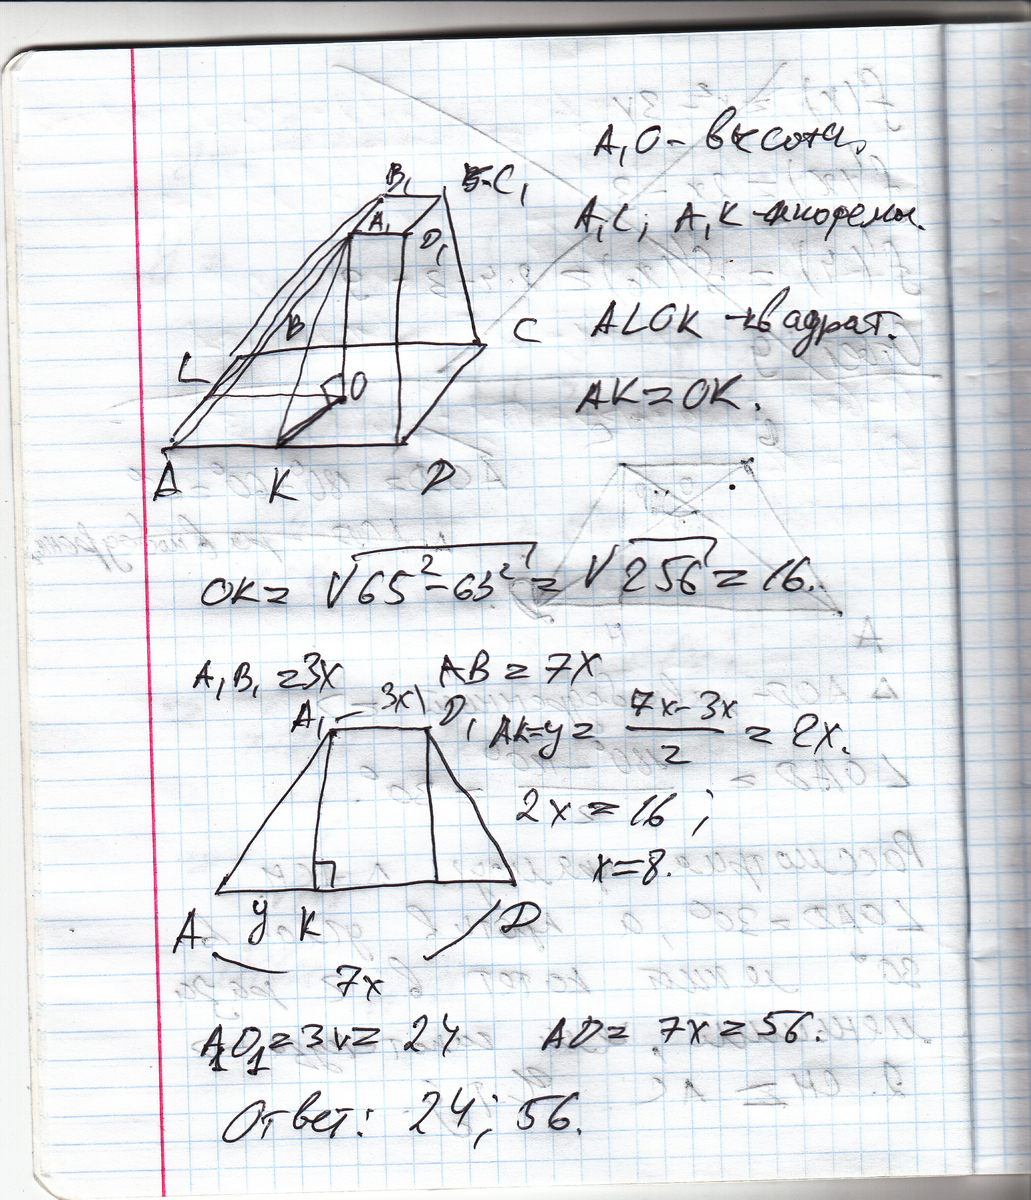 A₁O - высота.
A₁L; A₁K - апофемы.
ALOK - квадрат.
AK = OK.
B₁ C₁
A₁ D₁
B C
L O
A K D
OK = √65² - 63² = √256 = 16.
A₁B₁ = 3x AB = 7x
A₁ 3x D₁ AK = y = (7x - 3x)/2 = 2x.
2x = 16;
x = 8.
A y K D
7x
A₁D₁ = 3x = 24 AD = 7x = 56.
Ответ: 24; 56.